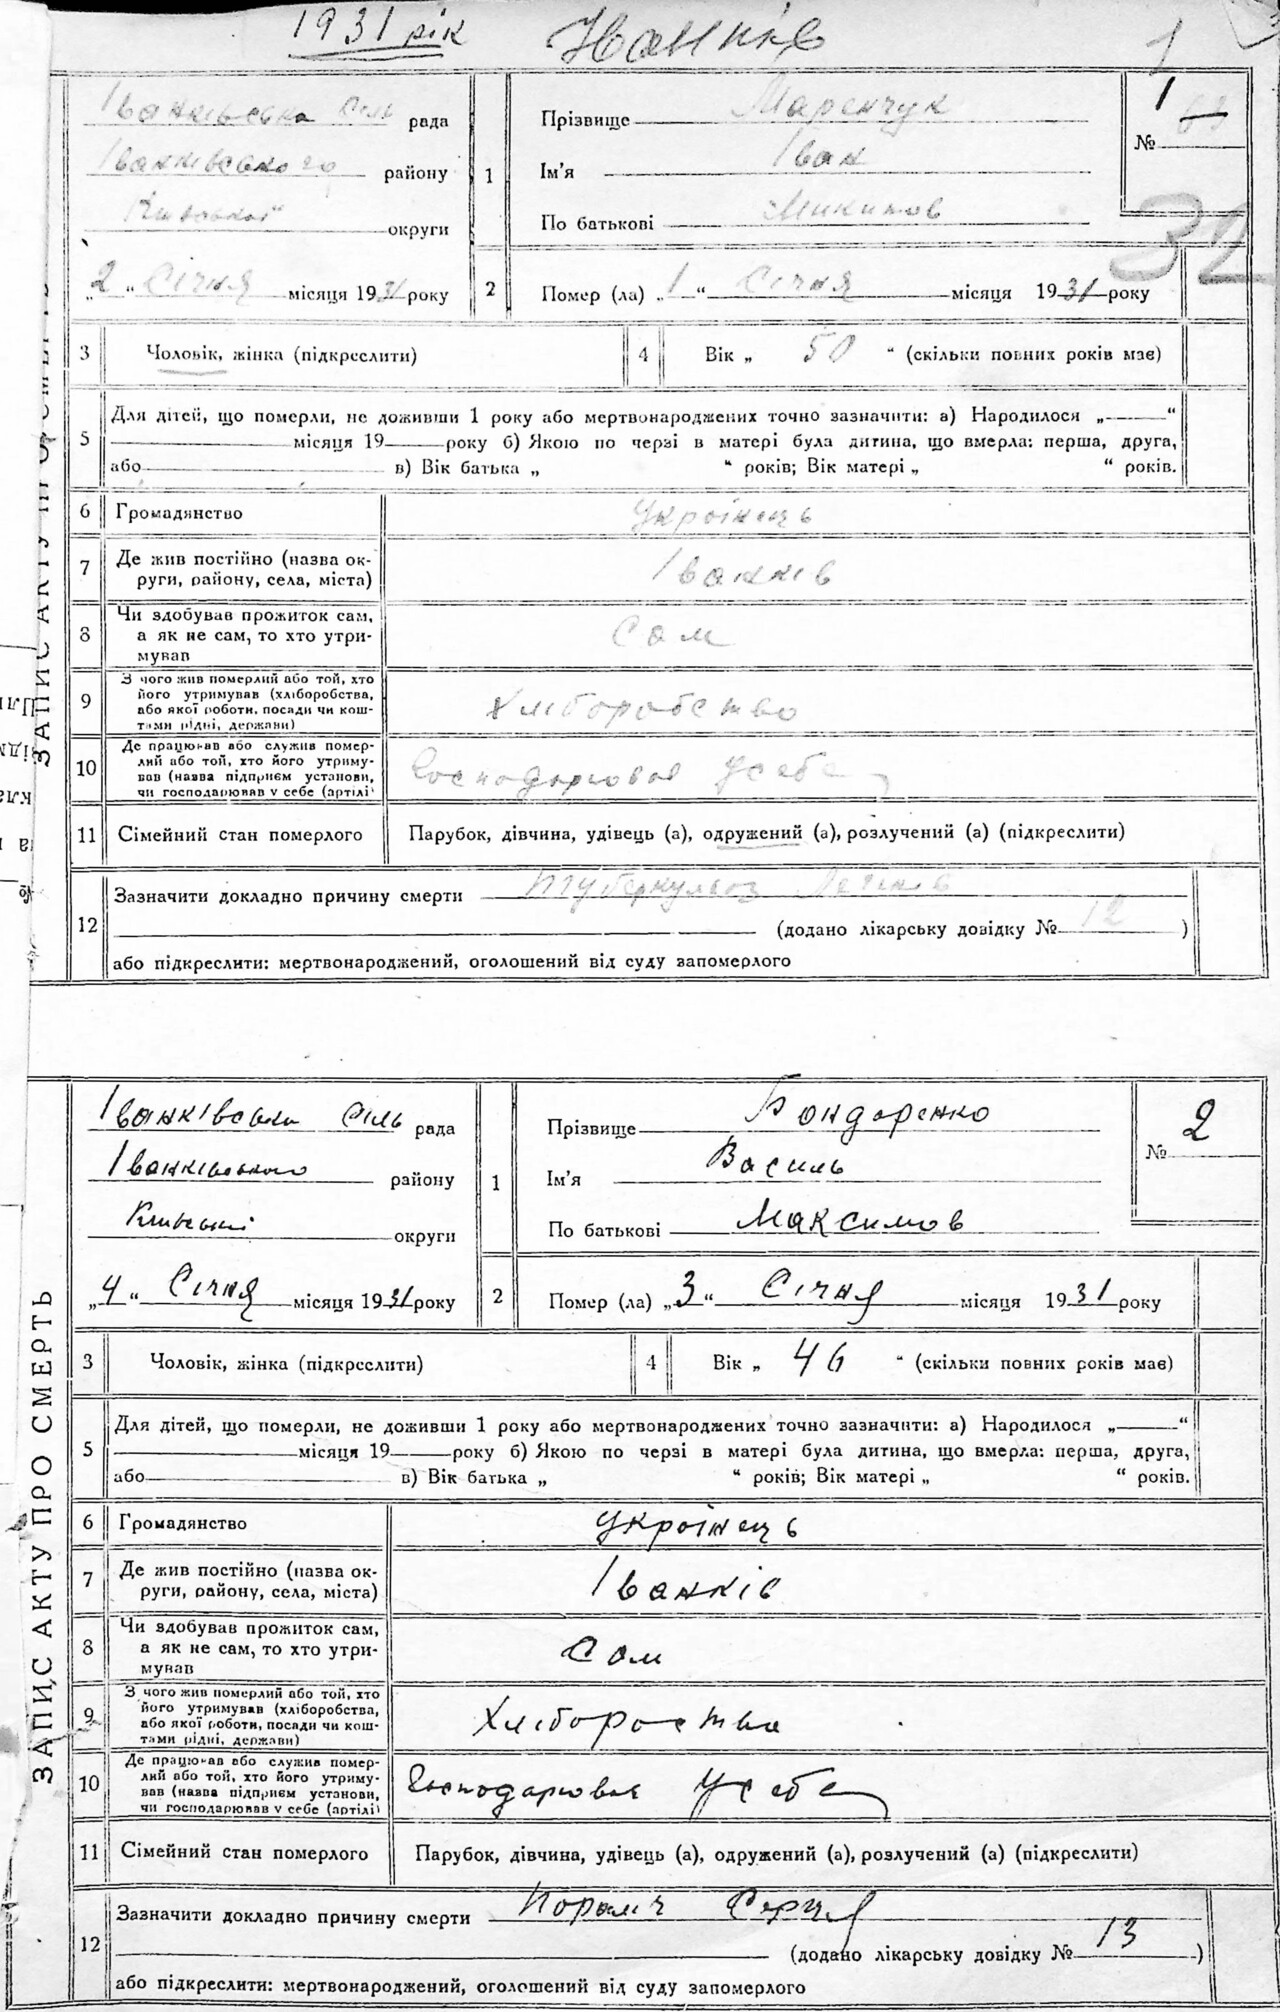 1931 рік Іванків
1
Іванківська сіль рада
Іванківського району
Київської округи
„2“ Січня місяця 1931 року
1
Прізвище Маренчук
Ім'я Іван
По батькові Микитов
№ 1
32
2
Помер (ла) „1“ Січня місяця 1931 року
3 Чоловік, жінка (підкреслити) 4 Вік „ 50 “ (скільки повних років має)
5 Для дітей, що померли, не доживши 1 року або мертвонароджених точно зазначити: а) Народилося „ “
місяця 19 року б) Якою по черзі в матері була дитина, що вмерла: перша, друга,
або в) Вік батька „ “ років; Вік матері „ “ років.
6 Громадянство Українець
7 Де жив постійно (назва ок-
руги, району, села, міста) Іванків
8 Чи здобував прожиток сам,
а як не сам, то хто утри-
мував Сам
9 З чого жив померлий або той, хто
його утримував (хліборобства,
або якої роботи, посади чи кош-
тами рідні, держави) Хліборобство
10 Де працював або служив помер-
лий або той, хто його утриму-
вав (назва підприєм установи,
чи господарював у себе (артілі) Господарював усебе
11 Сімейний стан померлого Парубок, дівчина, удівець (а), одружений (а), розлучений (а) (підкреслити)
12 Зазначити докладно причину смерти туберкульоз Легенів
(додано лікарську довідку № 12 )
або підкреслити: мертвонароджений, оголошений від суду запомерлого
ЗАПИС АКТУ ПРО СМЕРТЬ
Іванківська сіль рада
Іванківського району
Київської округи
„4“ Січня місяця 1931 року
1
Прізвище Бондаренко
Ім'я Василь
По батькові Максимов
№ 2
2
Помер (ла) „3“ Січня місяця 1931 року
3 Чоловік, жінка (підкреслити) 4 Вік „ 46 “ (скільки повних років має)
5 Для дітей, що померли, не доживши 1 року або мертвонароджених точно зазначити: а) Народилося „ “
місяця 19 року б) Якою по черзі в матері була дитина, що вмерла: перша, друга,
або в) Вік батька „ “ років; Вік матері „ “ років.
6 Громадянство Українець
7 Де жив постійно (назва ок-
руги, району, села, міста) Іванків
8 Чи здобував прожиток сам,
а як не сам, то хто утри-
мував Сам
9 З чого жив померлий або той, хто
його утримував (хліборобства,
або якої роботи, посади чи кош-
тами рідні, держави) Хлібороство
10 Де працював або служив помер-
лий або той, хто його утриму-
вав (назва підприєм установи,
чи господарював у себе (артілі) Господарював Усебе
11 Сімейний стан померлого Парубок, дівчина, удівець (а), одружений (а), розлучений (а) (підкреслити)
12 Зазначити докладно причину смерти Параліч Серця
(додано лікарську довідку № 13 )
або підкреслити: мертвонароджений, оголошений від суду запомерлого